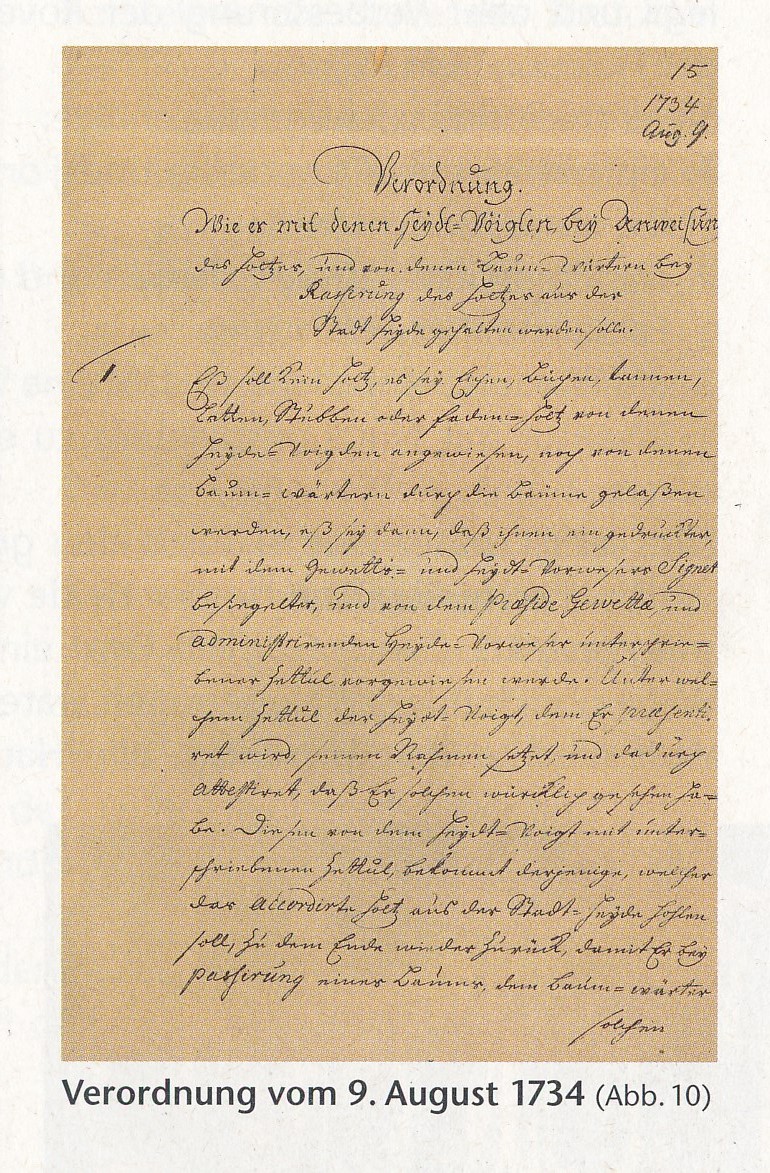 15
1734
Aug. 9.
Verordnung.
Wie es mit denen Heydt-Vöigten, bey Anweisung
des Holtzes, und von denen Baum-Wärtern bey
Passirung des Holtzes aus der
Stadt Heyde gehalten werden solle.
1.
Eß soll kein Holtz, es sey Eichen, Büchen, tannen,
Latten, Stubben oder Fadem-Holtz von denen
Heyde-Voigden angewiesen, noch von denen
Baum-wärtern durch die Bäume gelaßen
werden, eß sey dann, daß ihnen ein gedruckter,
mit dem Gewetts- und Heydt-Vorwesers Signet
besiegelter, und von dem Præside Gewettæ und
administrirenden Heyde-Vorweser unterschrie-
bener Zettul vorgewiesen werde. Unter wel-
chem Zettul der Heydt-Voigt, dem Er præsenti-
ret wird, seinen Nahmen setzet, und dadurch
attestiret, daß Er solchen würcklich gesehen ha-
be. Diesen von dem Heydt-Voigt mit unter-
schriebenen Zettul, bekommt derjenige, welcher
das accordirte Holtz aus der Stadt-Heyde hohlen
soll, zu dem Ende wieder zurück, damit Er bey
Passirung eines Baums, dem Baum-wärter
solchen
Verordnung vom 9. August 1734 (Abb. 10)